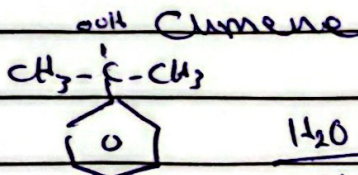 OOH Cumene
CH₃-C-CH₃
H₂O